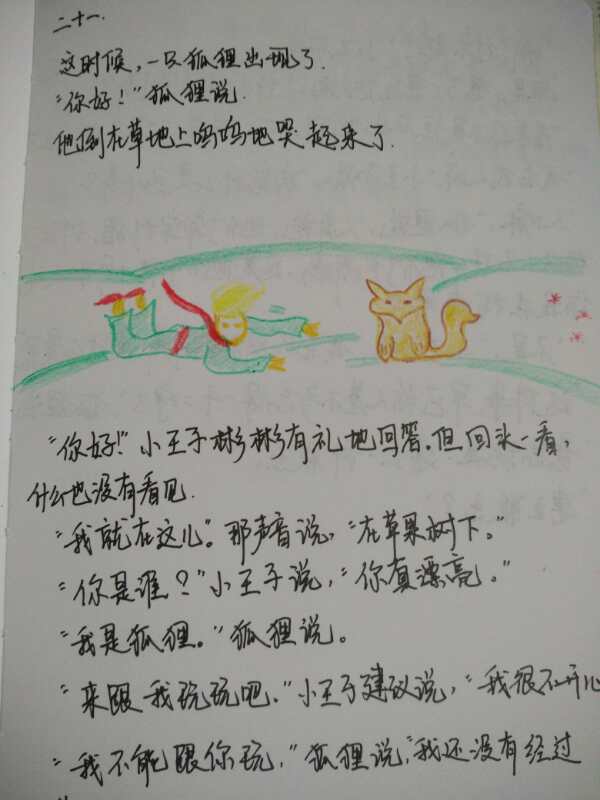 二十一.
这时候，一只狐狸出现了.
“你好！”狐狸说.
他倒在草地上呜呜地哭起来了.
“你好！”小王子彬彬有礼地回答.但回头一看，
什么也没有看见.
“我就在这儿”。那声音说，“在草果树下。”
“你是谁？”小王子说，“你真漂亮。”
“我是狐狸。”狐狸说。
“来跟我玩玩吧.”小王子建议说，“我很不开心
“我不能跟你玩，”狐狸说，“我还没有经过